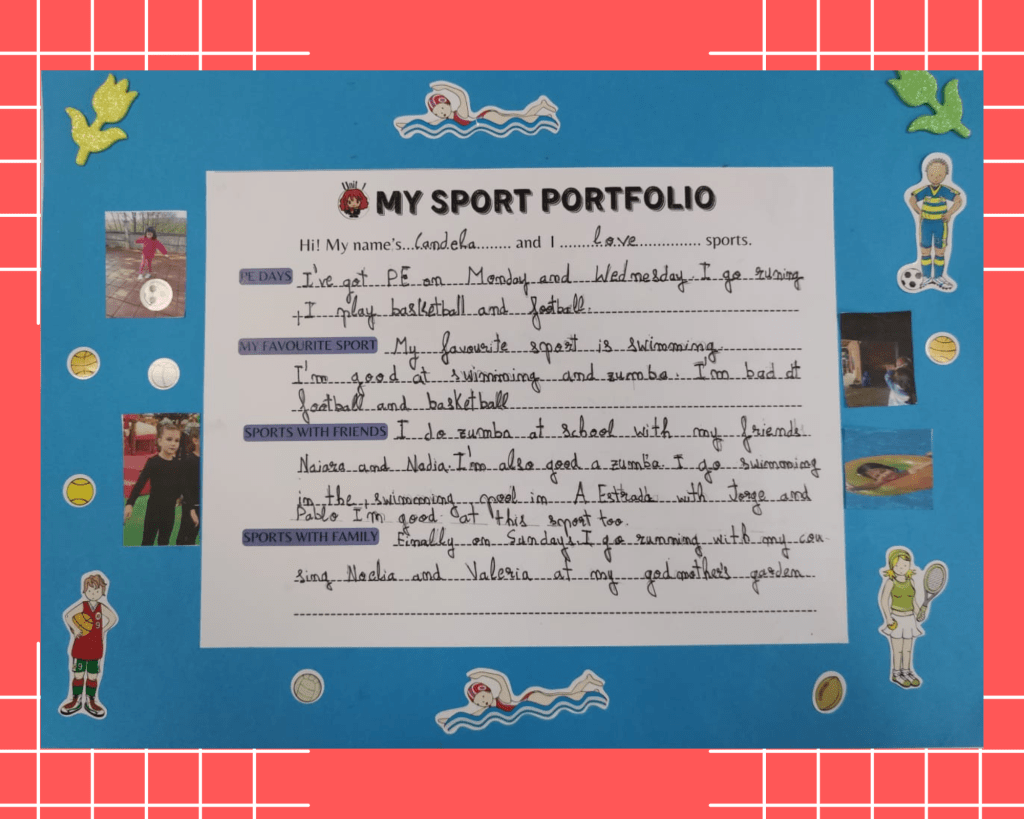 Unit 1 MY SPORT PORTFOLIO
Hi! My name's...Candela........ and I .......love............... sports.
PE DAYS I've got PE on Monday and Wednesday. I go runing
+I play basketball and football.
MY FAVOURITE SPORT My favourite sport is swimming
I'm good at swimming and zumba. I'm bad at
football and basketball
SPORTS WITH FRIENDS I do zumba at school with my friends
Naiara and Nadia. I'm also good a zumba. I go swimming
in the swimming pool in A Estrada with Jorge and
Pablo I'm good at this sport too.
SPORTS WITH FAMILY Finally on Sundays I go running with my cou
sing Noelia and Valeria at my godmother's garden